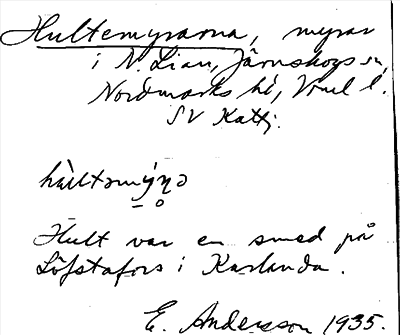 Hultemyrarna, myrar
i N. Lian, Järnskogs sn,
Nordmarks hd, Vrml l.
SV Kattj.
Hult var en smed på
Löfstafors i Karlanda.
E. Andersson 1935.